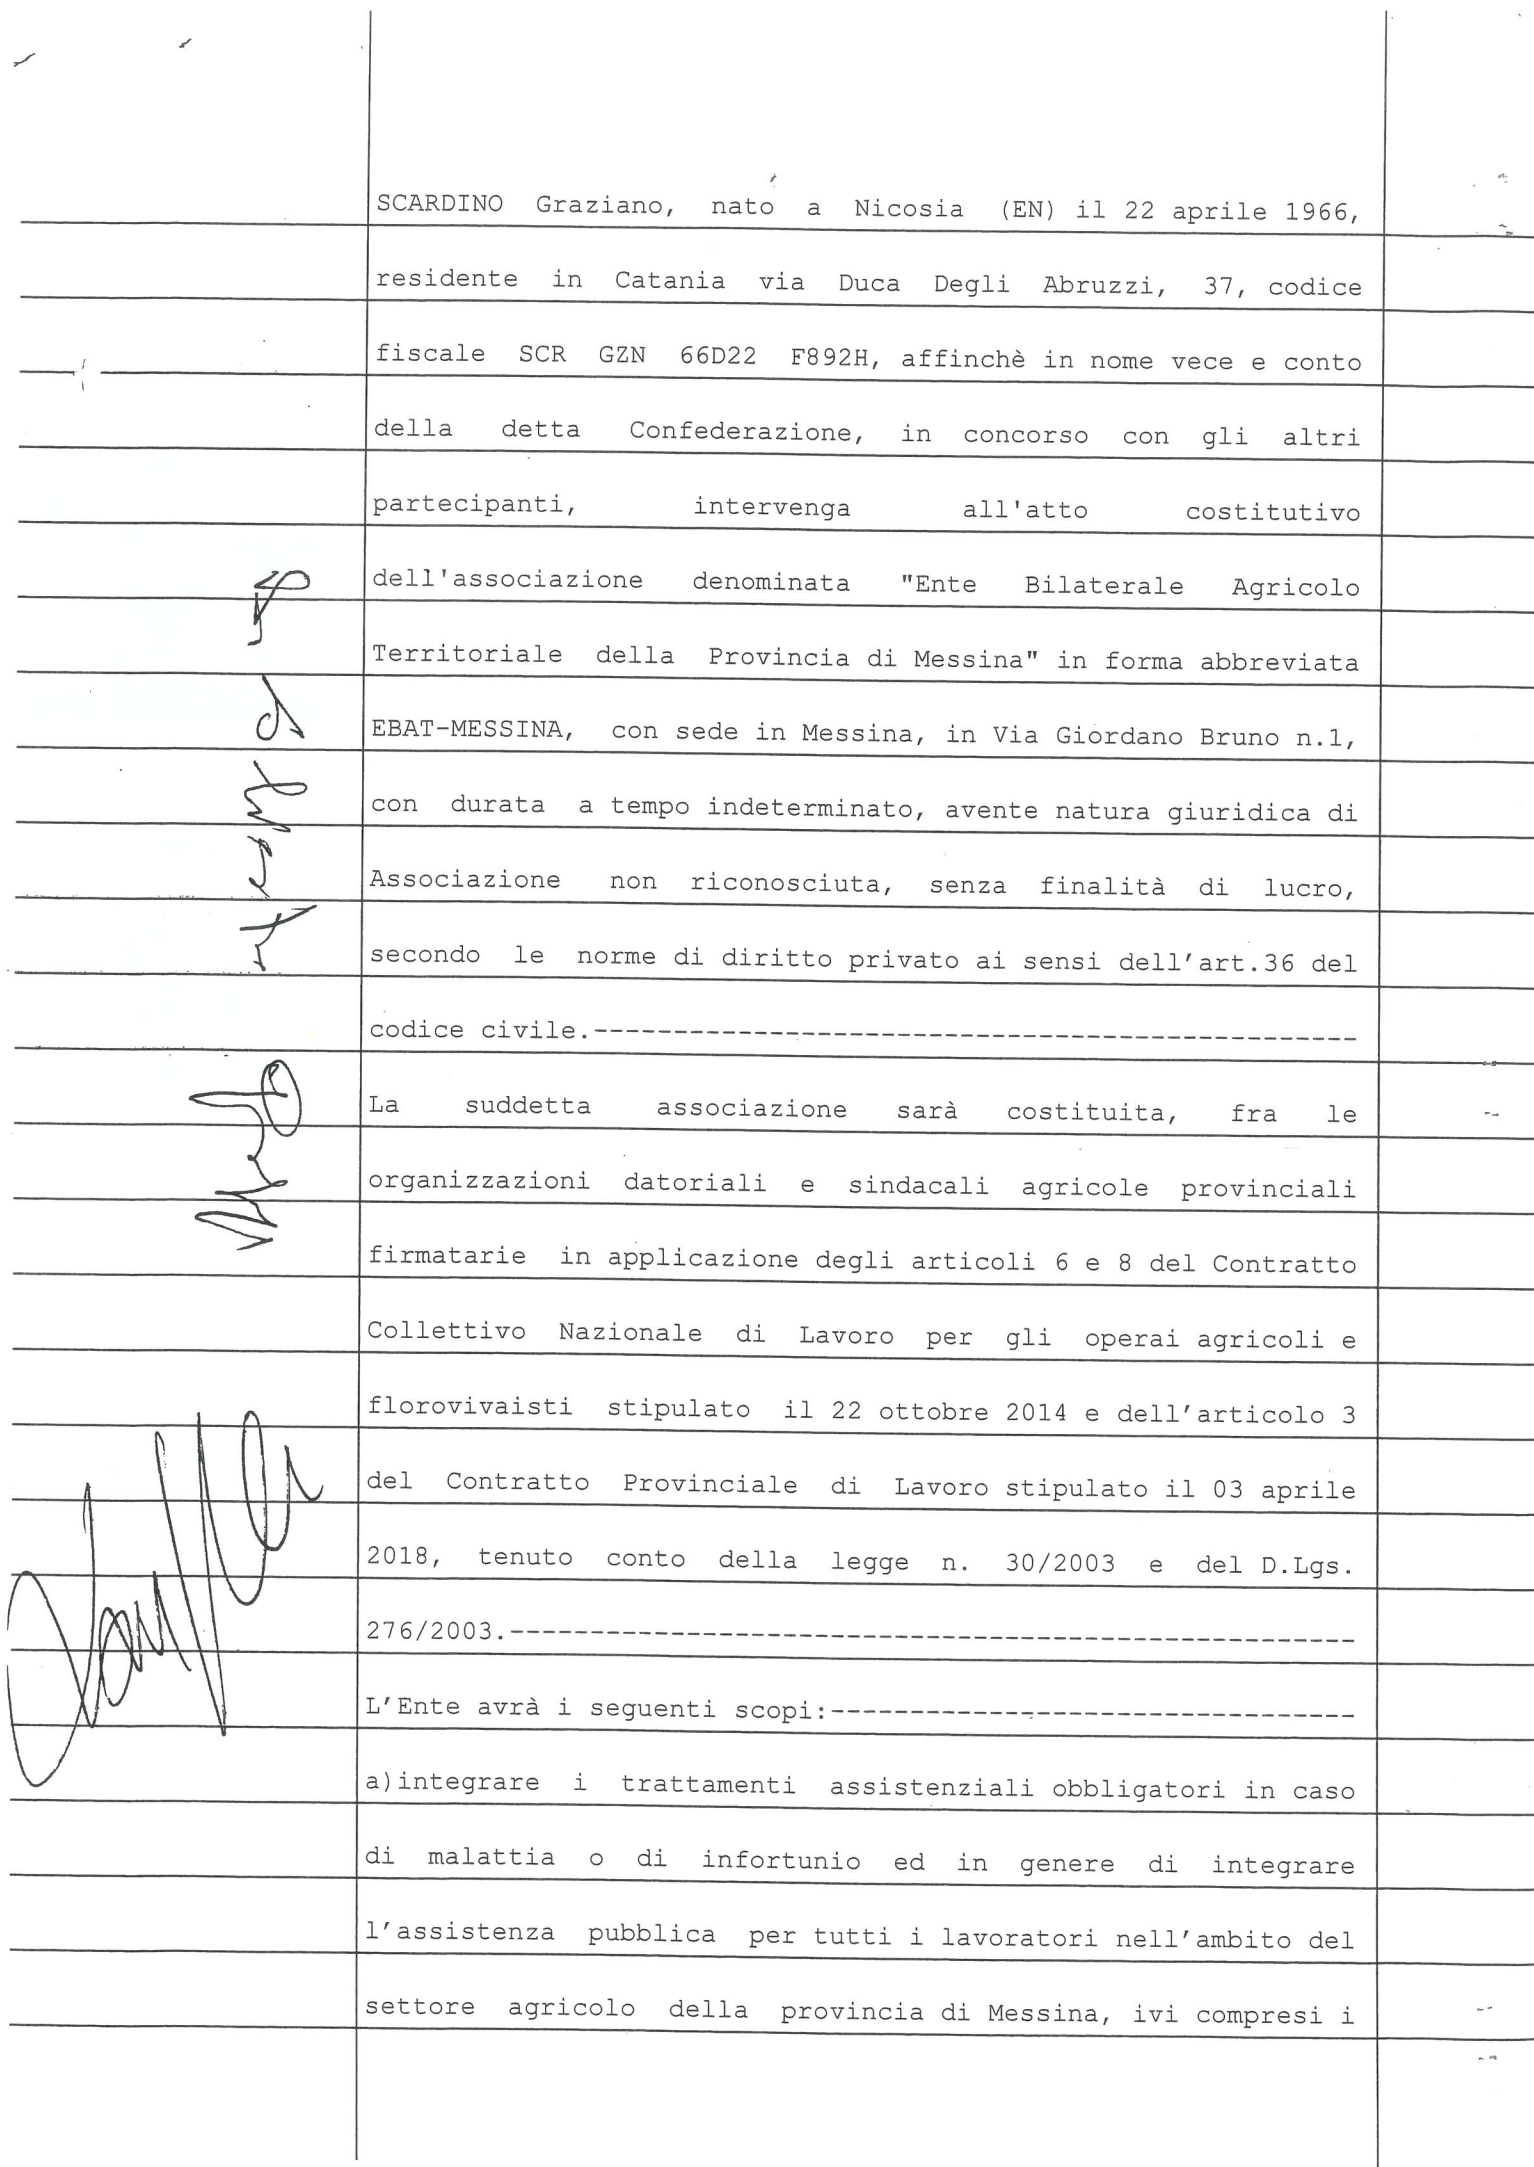 SCARDINO Graziano, nato a Nicosia (EN) il 22 aprile 1966,
residente in Catania via Duca Degli Abruzzi, 37, codice
fiscale SCR GZN 66D22 F892H, affinchè in nome vece e conto
della detta Confederazione, in concorso con gli altri
partecipanti, intervenga all'atto costitutivo
dell'associazione denominata "Ente Bilaterale Agricolo
Territoriale della Provincia di Messina" in forma abbreviata
EBAT-MESSINA, con sede in Messina, in Via Giordano Bruno n.1,
con durata a tempo indeterminato, avente natura giuridica di
Associazione non riconosciuta, senza finalità di lucro,
secondo le norme di diritto privato ai sensi dell'art.36 del
codice civile.------------------------------------------------
La suddetta associazione sarà costituita, fra le
organizzazioni datoriali e sindacali agricole provinciali
firmatarie in applicazione degli articoli 6 e 8 del Contratto
Collettivo Nazionale di Lavoro per gli operai agricoli e
florovivaisti stipulato il 22 ottobre 2014 e dell'articolo 3
del Contratto Provinciale di Lavoro stipulato il 03 aprile
2018, tenuto conto della legge n. 30/2003 e del D.Lgs.
276/2003.-----------------------------------------------------
L'Ente avrà i seguenti scopi:---------------------------------
a)integrare i trattamenti assistenziali obbligatori in caso
di malattia o di infortunio ed in genere di integrare
l'assistenza pubblica per tutti i lavoratori nell'ambito del
settore agricolo della provincia di Messina, ivi compresi i